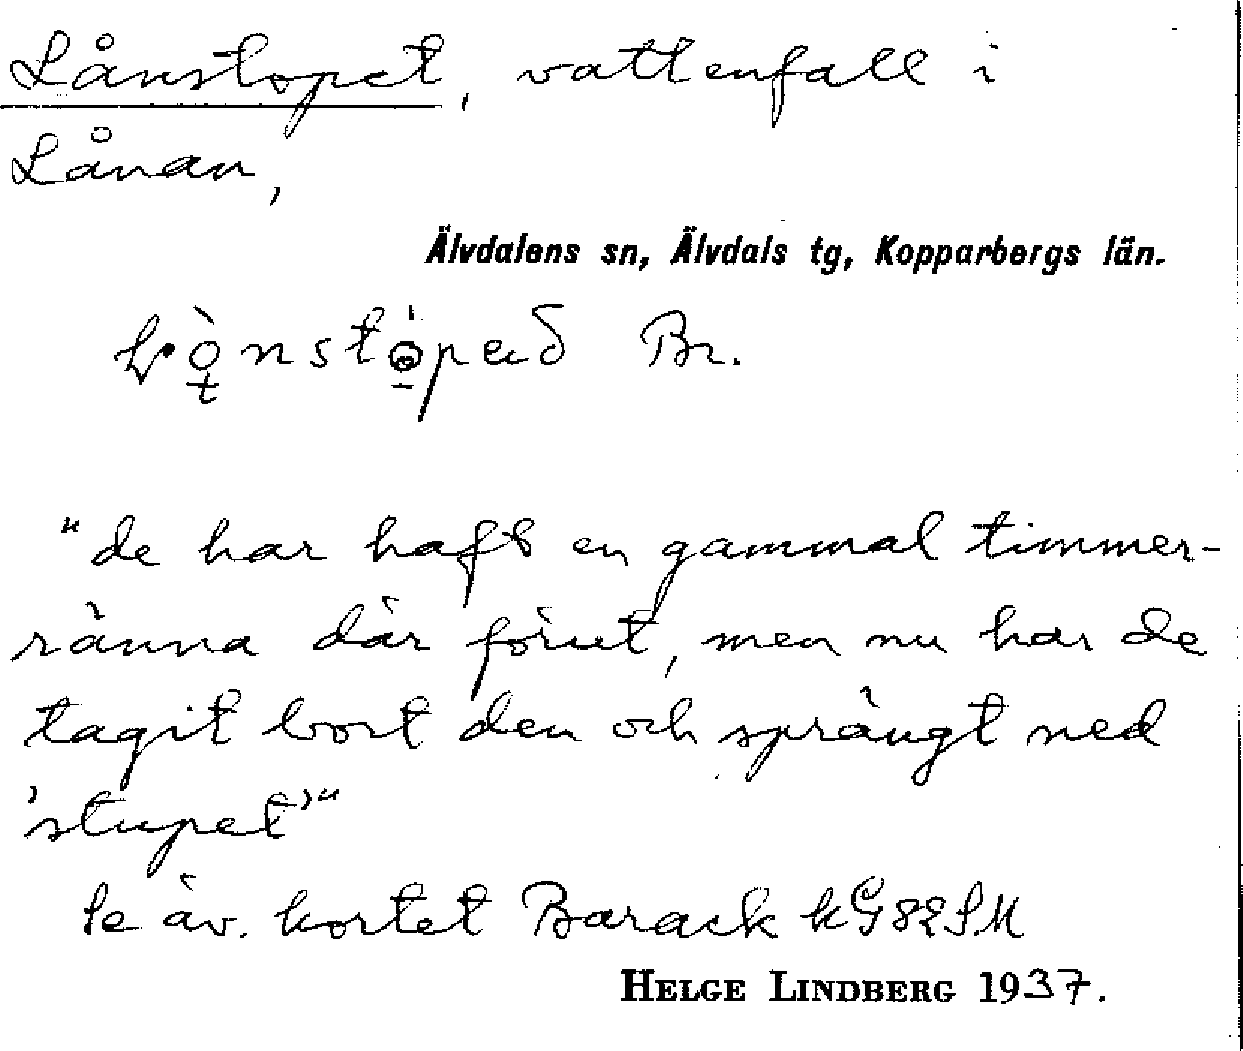 Lånstopet, vattenfall i
Lånan,
Älvdalens sn, Älvdals tg, Kopparbergs län.
Br.
"de har haft en gammal timmer-
ränna där förut, men nu har de
tagit bort den och sprängt ned
'stupet'"
Se äv. kortet Barack
HELGE LINDBERG 1937.